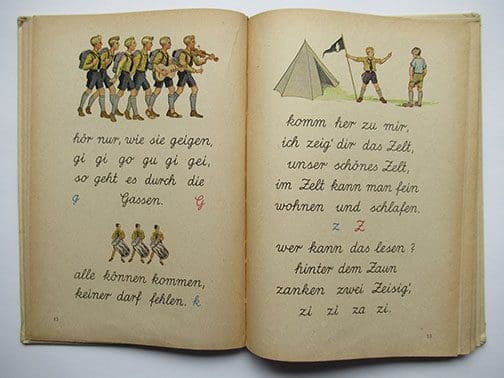 hör nur, wie sie geigen,
gi gi go gu gi gei,
so geht es durch die
g Gassen. G
alle können kommen,
keiner darf fehlen. k
komm her zu mir,
ich zeig' dir das Zelt,
unser schönes Zelt,
im Zelt kann man fein
wohnen und schlafen.
z Z
wer kann das lesen?
hinter dem Zaun
zanken zwei Zeisig',
zi zi za zi.